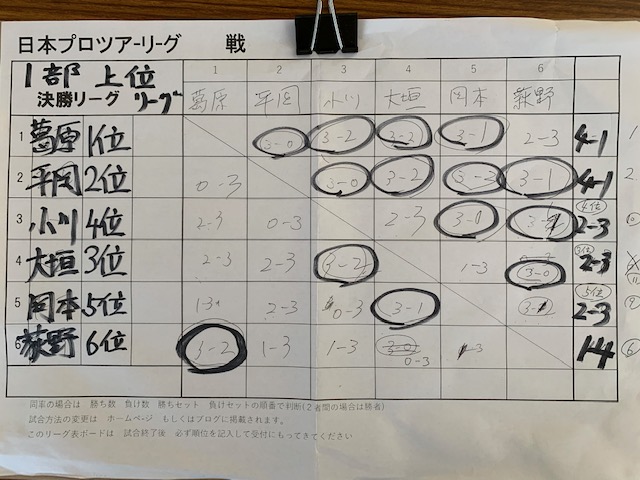 日本プロツアーリーグ 戦
1部 上位 リーグ
決勝リーグ
1 2 3 4 5 6
葛原 平岡 小川 大垣 岡本 萩野
1 葛原 1位 3-0 3-2 3-2 3-1 2-3 4-1
2 平岡 2位 0-3 3-0 3-2 3-2 3-1 4-1
3 小川 4位 2-3 0-3 2-3 3-0 4位 2-3
4 大垣 3位 2-3 2-3 3-2 1-3 3-0 3位 2-3
5 岡本 5位 1-3 2-3 0-3 3-1 5位 2-3
6 萩野 6位 3-2 1-3 1-3 0-3 1-4
同率の場合は 勝ち数 負け数 勝ちセット 負けセットの順番で判断(2者間の場合は勝者)
試合方法の変更は ホームページ もしくはブログに掲載されます。
このリーグ表ボードは 試合終了後 必ず順位を記入して受付にもってきてください